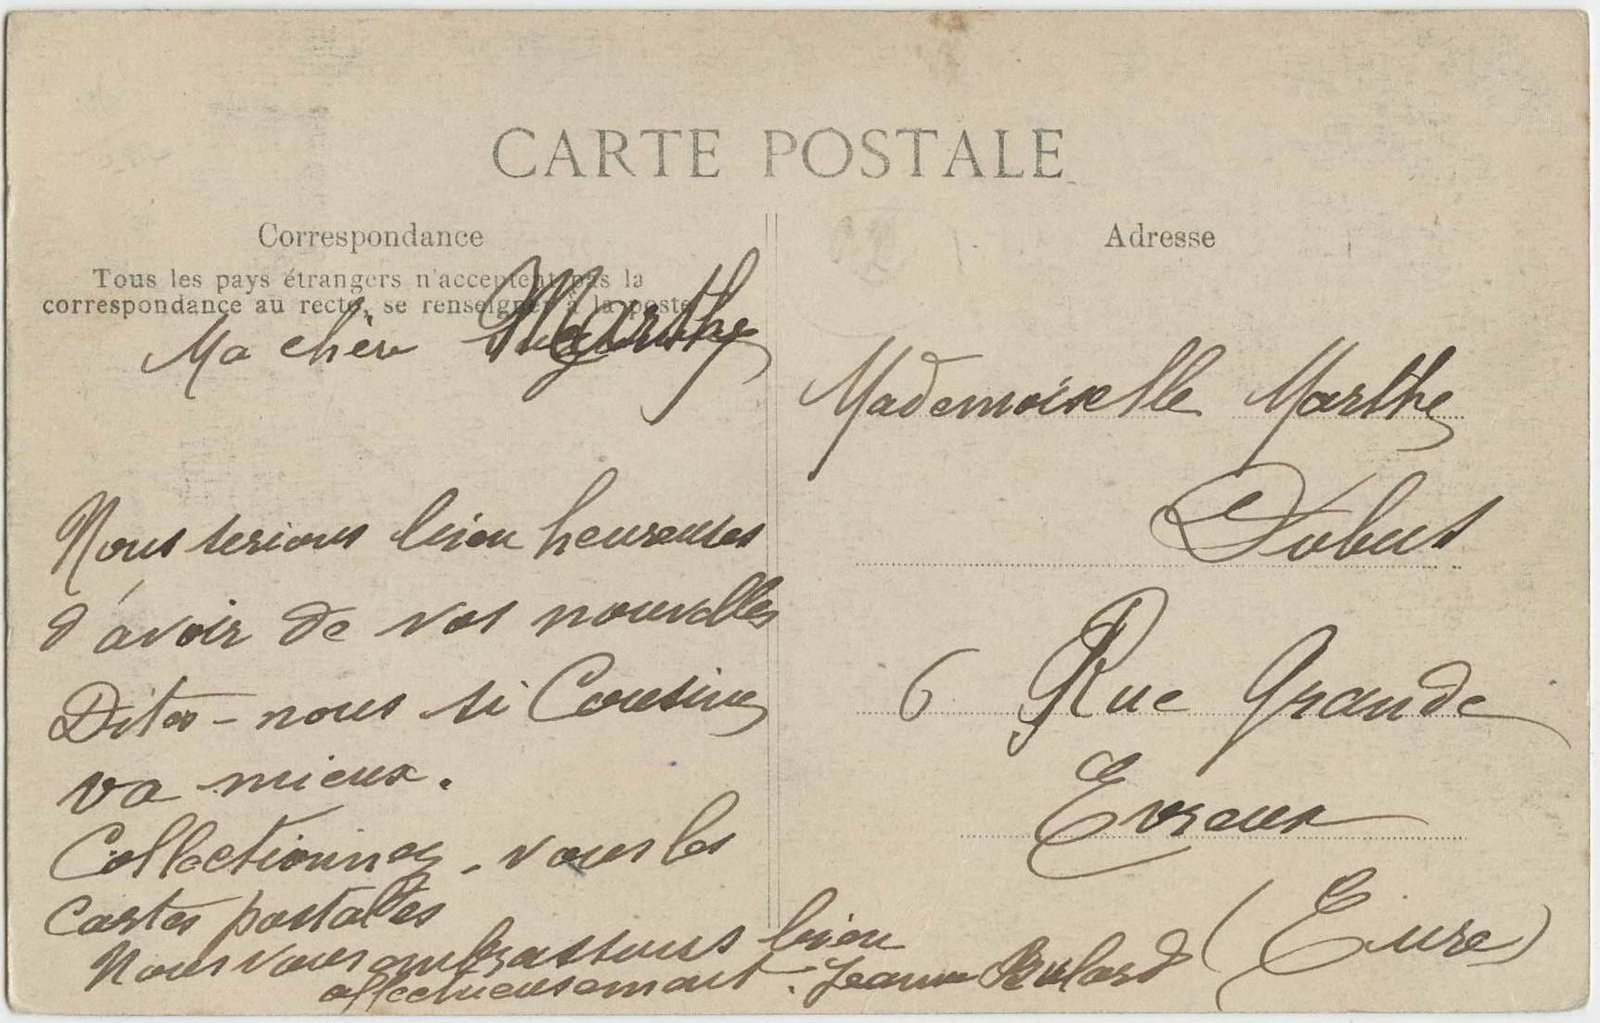 CARTE POSTALE
Correspondance
Tous les pays étrangers n'acceptent pas la
correspondance au recto, se renseigner à la poste
Ma chère Marthe
Nous serions bien heureuses
d'avoir de vos nouvelles
Dites-nous si Cousine
va mieux.
Collectionnez-vous les
cartes postales
Nous vous embrassons bien
affectueusement. Jeanne
Adresse
Mademoiselle Marthe
Dubus
6 Rue Grande
Evreux
(Eure)